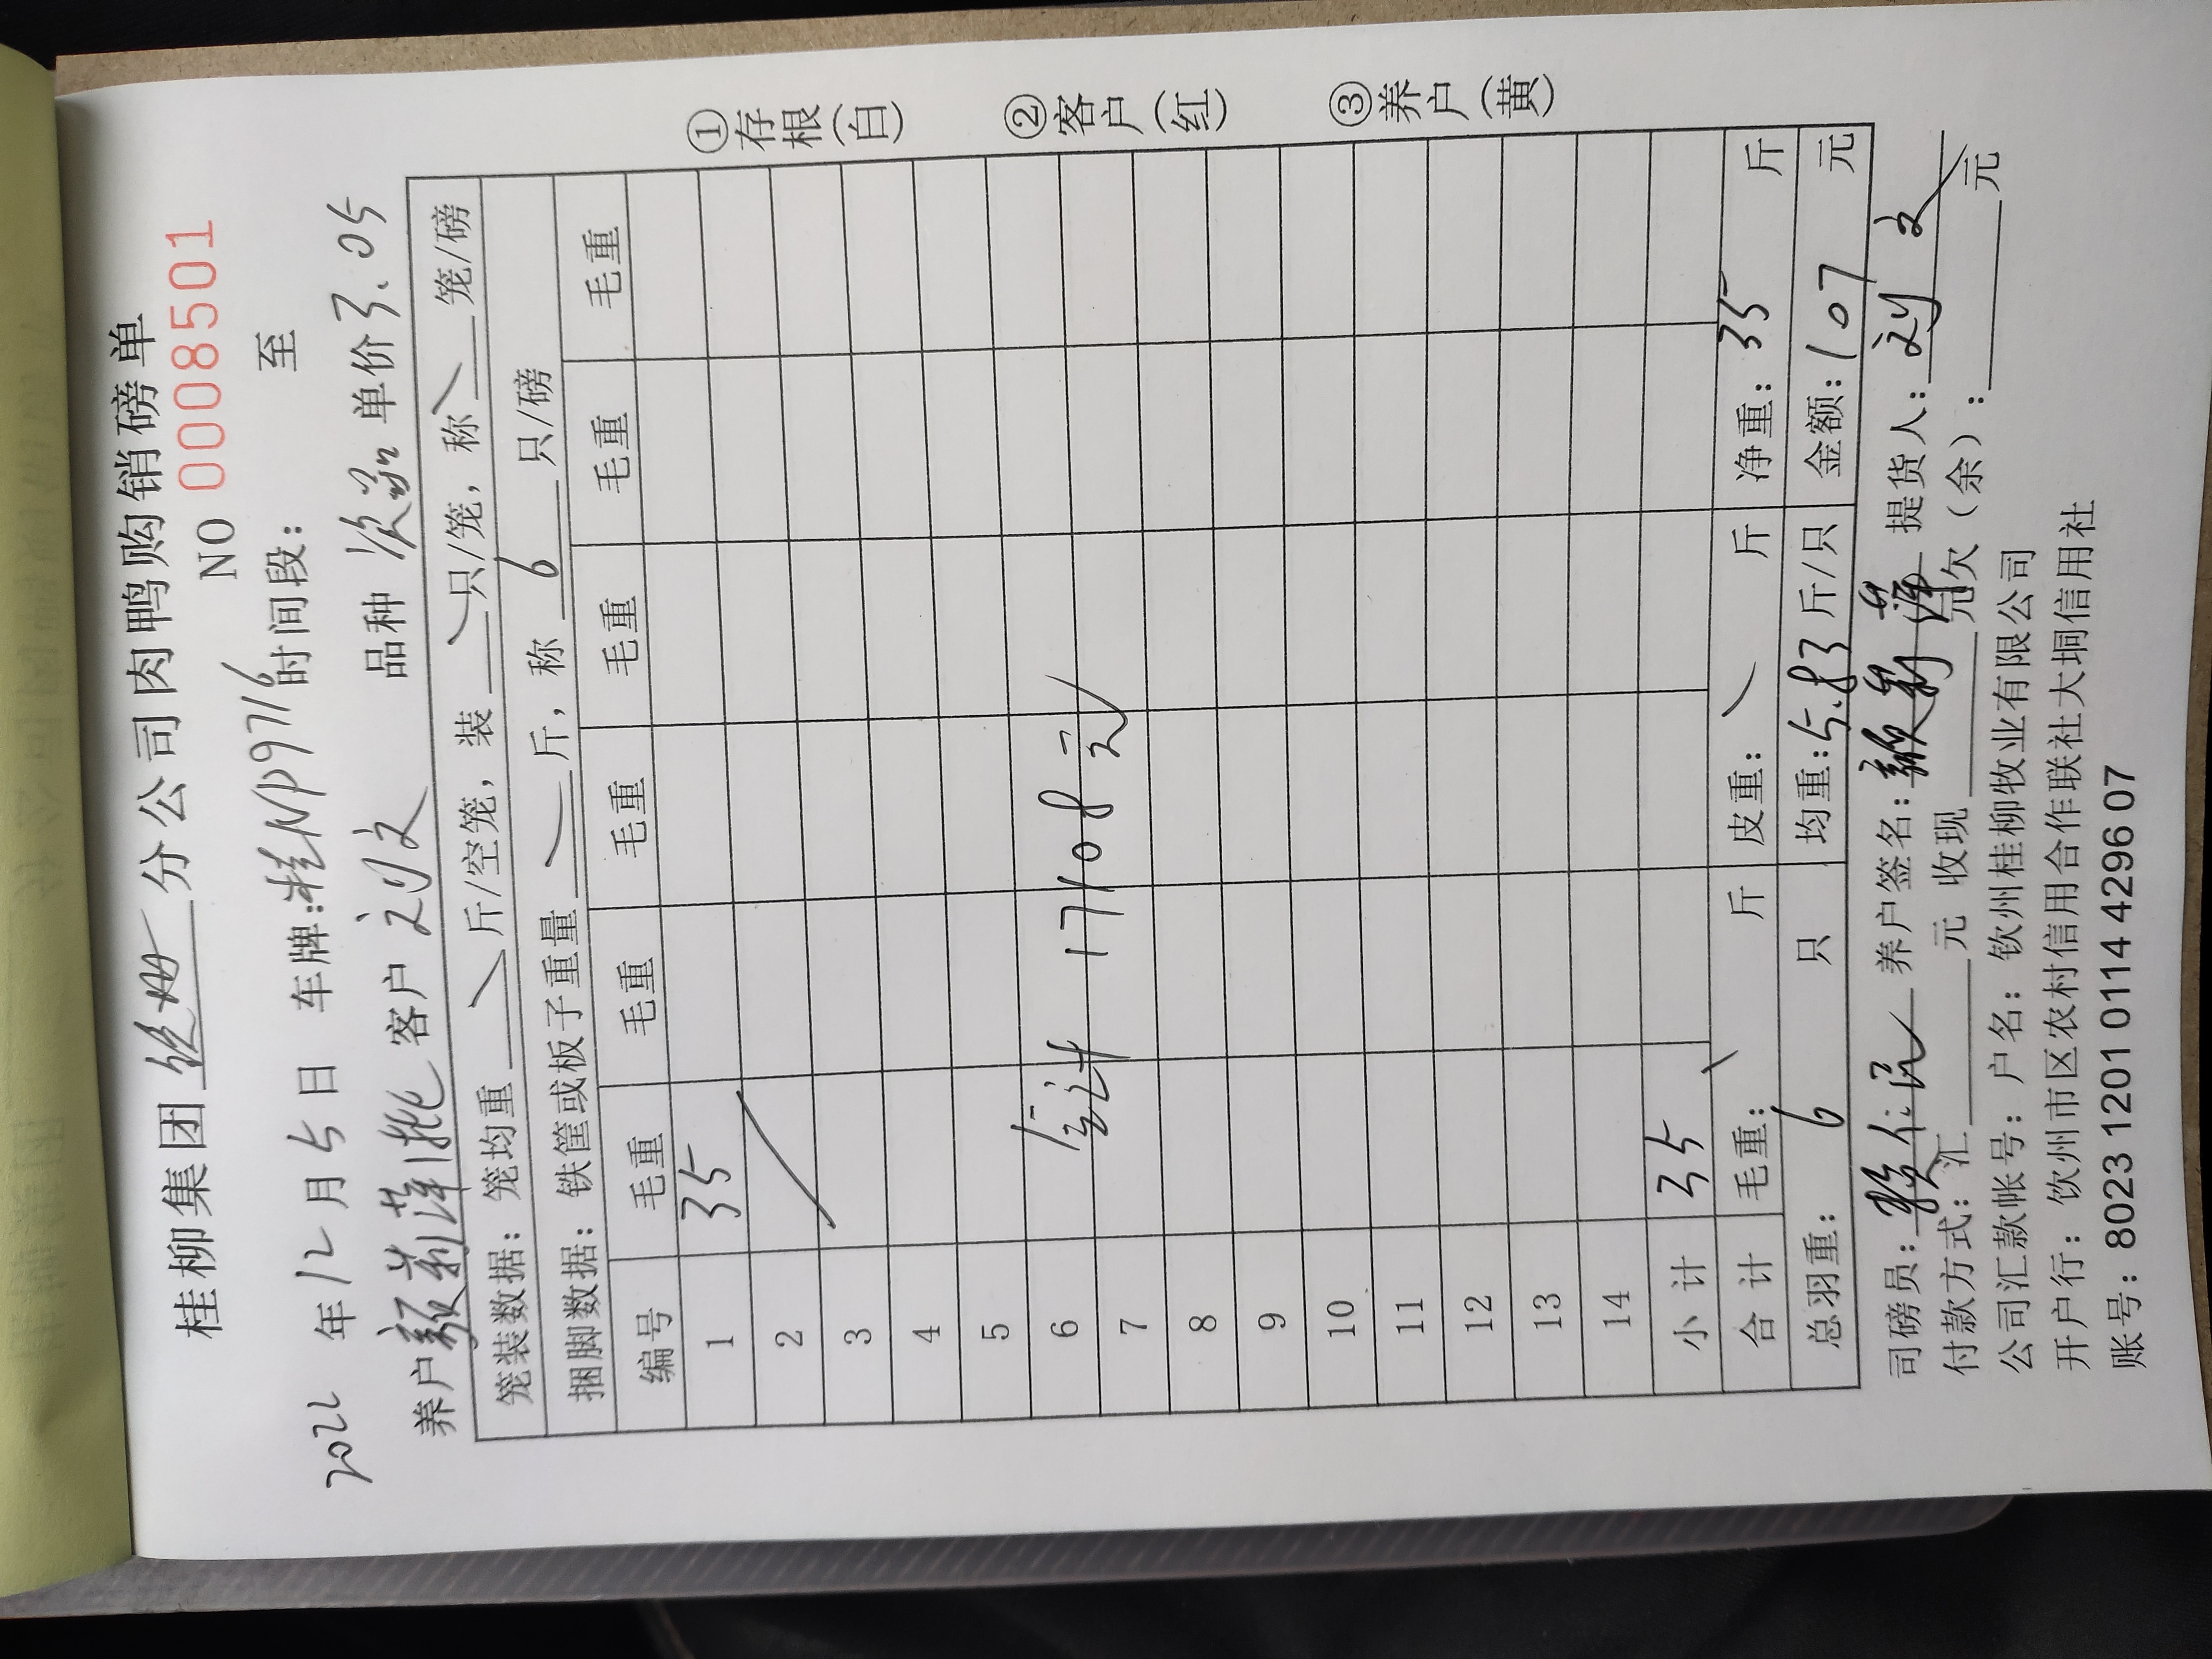 桂柳集团 钦州 分公司肉鸭购销磅单
NO 0008501
2022 年 12 月 5 日 车牌:桂NP9716 时间段: 至
养户 客户 刘文 品种 次品 单价 3.05
笼装数据: 笼均重 斤/空笼, 装 只/笼, 称 笼/磅
捆脚数据: 铁筐或板子重量 斤, 称 6 只/磅
编号 毛重 毛重 毛重 毛重 毛重 毛重
1 35
2
3
4
5
6
7
合计 1708元
8
9
10
11
12
13
14
小 计 35
合 计 毛重: 斤 皮重: 斤 净重: 35 斤
总羽重: 6 只 均重: 5.83 斤/只 金额: 107 元
①存根(白) ②客户(红) ③养户(黄)
司磅员: 养户签名: 提货人: 刘文
付款方式: 汇 元 收现 元 欠(余): 元
公司汇款帐号: 户名: 钦州桂柳牧业有限公司
开户行: 饮州市区农村信用合作联社大垌信用社
账号: 8023 1201 0114 4296 07